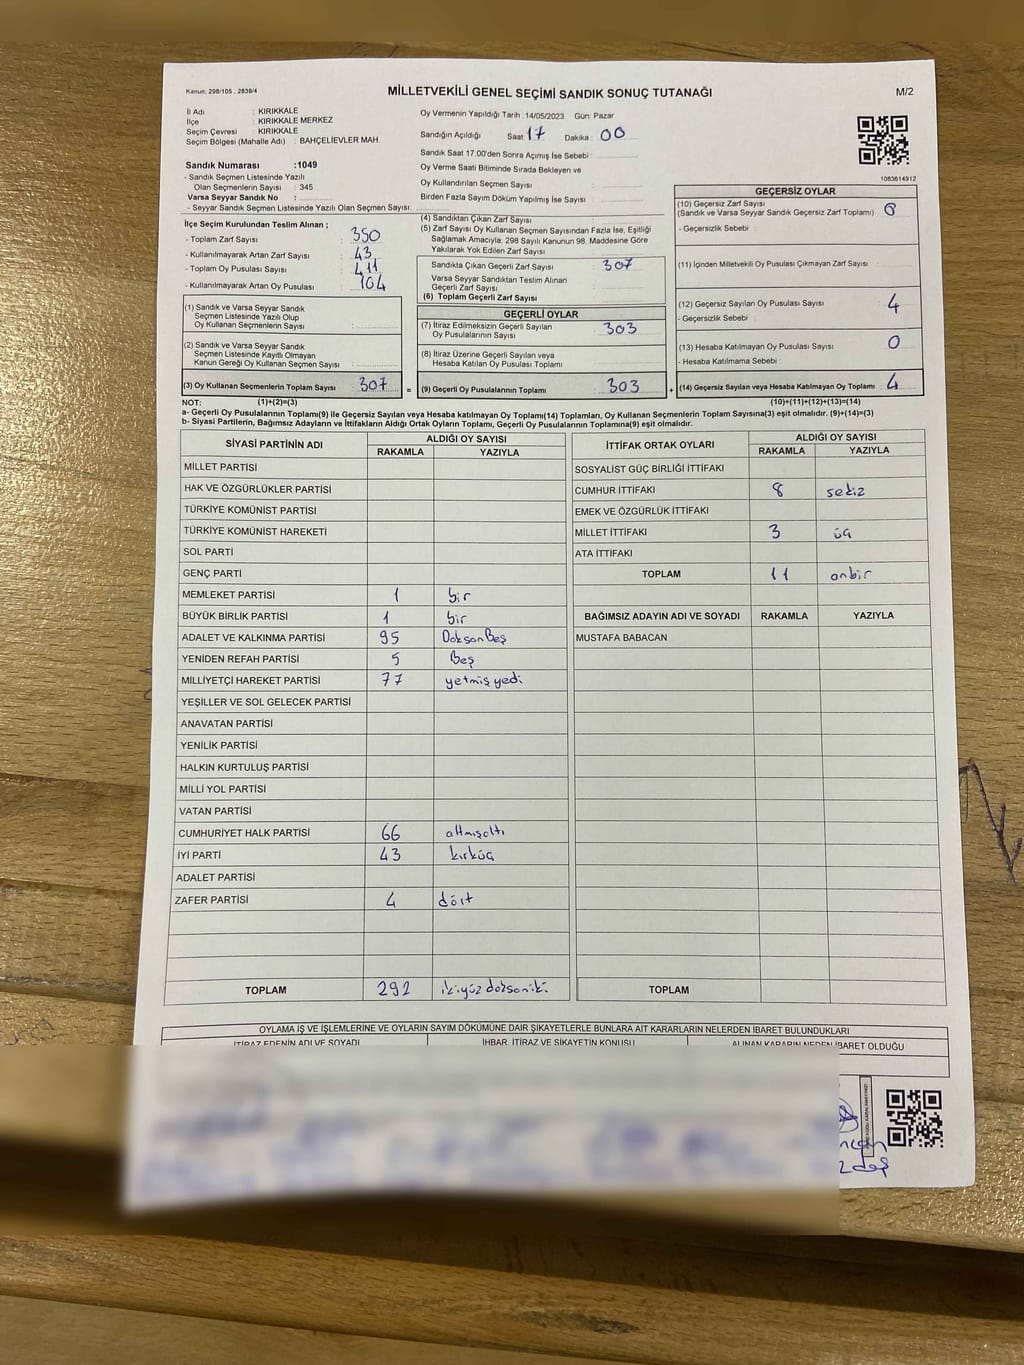 Kanun; 298/105 , 2839/4
MİLLETVEKİLİ GENEL SEÇİMİ SANDIK SONUÇ TUTANAĞI
M/2
İl Adı : KIRIKKALE
İlçe : KIRIKKALE MERKEZ
Seçim Çevresi : KIRIKKALE
Seçim Bölgesi (Mahalle Adı) : BAHÇELİEVLER MAH.
Oy Vermenin Yapıldığı Tarih :14/05/2023 Gün: Pazar
Sandığın Açıldığı Saat 17 Dakika: 00
Sandık Saat 17.00'den Sonra Açılmış İse Sebebi :
Oy Verme Saati Bitiminde Sırada Bekleyen ve
Oy Kullandırılan Seçmen Sayısı :
Birden Fazla Sayım Döküm Yapılmış İse Sayısı :
1083614912
Sandık Numarası :1049
- Sandık Seçmen Listesinde Yazılı
Olan Seçmenlerin Sayısı : 345
Varsa Seyyar Sandık No :
- Seyyar Sandık Seçmen Listesinde Yazılı Olan Seçmen Sayısı:
İlçe Seçim Kurulundan Teslim Alınan ;
- Toplam Zarf Sayısı : 350
- Kullanılmayarak Artan Zarf Sayısı : 43
- Toplam Oy Pusulası Sayısı : 411
- Kullanılmayarak Artan Oy Pusulası : 104
(1) Sandık ve Varsa Seyyar Sandık
Seçmen Listesinde Yazılı Olup
Oy Kullanan Seçmenlerin Sayısı :
(2) Sandık ve Varsa Seyyar Sandık
Seçmen Listesinde Kayıtlı Olmayan
Kanun Gereği Oy Kullanan Seçmen Sayısı :
(3) Oy Kullanan Seçmenlerin Toplam Sayısı : 307 =
(4) Sandıktan Çıkan Zarf Sayısı :
(5) Zarf Sayısı Oy Kullanan Seçmen Sayısından Fazla İse, Eşitliği
Sağlamak Amacıyla; 298 Sayılı Kanunun 98. Maddesine Göre
Yakılarak Yok Edilen Zarf Sayısı :
Sandıkta Çıkan Geçerli Zarf Sayısı : 307
Varsa Seyyar Sandıktan Teslim Alınan
Geçerli Zarf Sayısı :
(6) Toplam Geçerli Zarf Sayısı :
GEÇERLİ OYLAR
(7) İtiraz Edilmeksizin Geçerli Sayılan
Oy Pusulalarının Sayısı : 303
(8) İtiraz Üzerine Geçerli Sayılan veya
Hesaba Katılan Oy Pusulası Toplamı :
(9) Geçerli Oy Pusulalarının Toplamı : 303 +
GEÇERSİZ OYLAR
(10) Geçersiz Zarf Sayısı
(Sandık ve Varsa Seyyar Sandık Geçersiz Zarf Toplamı) :
- Geçersizlik Sebebi :
(11) İçinden Milletvekili Oy Pusulası Çıkmayan Zarf Sayısı :
(12) Geçersiz Sayılan Oy Pusulası Sayısı : 4
- Geçersizlik Sebebi :
(13) Hesaba Katılmayan Oy Pusulası Sayısı : 0
- Hesaba Katılmama Sebebi :
(14) Geçersiz Sayılan veya Hesaba Katılmayan Oy Toplamı : 4
NOT: (1)+(2)=(3) (10)+(11)+(12)+(13)=(14)
a- Geçerli Oy Pusulalarının Toplamı(9) ile Geçersiz Sayılan veya Hesaba katılmayan Oy Toplamı(14) Toplamları, Oy Kullanan Seçmenlerin Toplam Sayısına(3) eşit olmalıdır. (9)+(14)=(3)
b- Siyasi Partilerin, Bağımsız Adayların ve İttifakların Aldığı Ortak Oyların Toplamı, Geçerli Oy Pusulalarının Toplamına(9) eşit olmalıdır.
SİYASİ PARTİNİN ADI ALDIĞI OY SAYISI
RAKAMLA YAZIYLA
MİLLET PARTİSİ
HAK VE ÖZGÜRLÜKLER PARTİSİ
TÜRKİYE KOMÜNİST PARTİSİ
TÜRKİYE KOMÜNİST HAREKETİ
SOL PARTİ
GENÇ PARTİ
MEMLEKET PARTİSİ 1 bir
BÜYÜK BİRLİK PARTİSİ 1 bir
ADALET VE KALKINMA PARTİSİ 95 Doksan Beş
YENİDEN REFAH PARTİSİ 5 Beş
MİLLİYETÇİ HAREKET PARTİSİ 77 yetmiş yedi
YEŞİLLER VE SOL GELECEK PARTİSİ
ANAVATAN PARTİSİ
YENİLİK PARTİSİ
HALKIN KURTULUŞ PARTİSİ
MİLLİ YOL PARTİSİ
VATAN PARTİSİ
CUMHURİYET HALK PARTİSİ 66 altmışaltı
İYİ PARTİ 43 kırküç
ADALET PARTİSİ
ZAFER PARTİSİ 4 dört
TOPLAM 292 ikiyüz doksaniki
İTTİFAK ORTAK OYLARI ALDIĞI OY SAYISI
RAKAMLA YAZIYLA
SOSYALİST GÜÇ BİRLİĞİ İTTİFAKI
CUMHUR İTTİFAKI 8 sekiz
EMEK VE ÖZGÜRLÜK İTTİFAKI
MİLLET İTTİFAKI 3 üç
ATA İTTİFAKI
TOPLAM 11 onbir
BAĞIMSIZ ADAYIN ADI VE SOYADI RAKAMLA YAZIYLA
MUSTAFA BABACAN
TOPLAM
OYLAMA İŞ VE İŞLEMLERİNE VE OYLARIN SAYIM DÖKÜMÜNE DAİR ŞİKAYETLERLE BUNLARA AİT KARARLARIN NELERDEN İBARET BULUNDUKLARI
İTİRAZ EDENİN ADI VE SOYADI İHBAR, İTİRAZ VE ŞİKAYETİN KONUSU ALINAN KARARIN NEDEN İBARET OLDUĞU